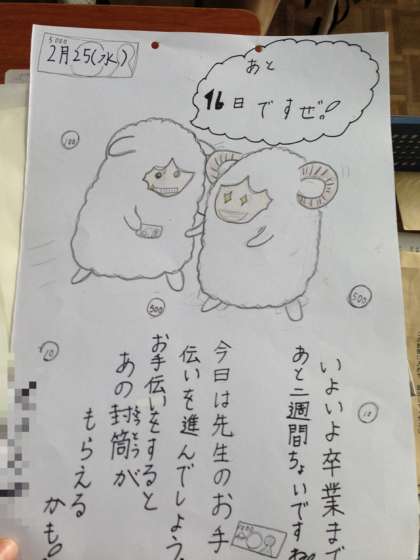 5000
2月25(水)
あと
16日ですぜ!
100
500
500
10
10
いよいよ卒業まで
あと二週間ちょいですね
今日は先生のお手
伝いを進んでしょう。
お手伝いをすると
あの封筒が
ふうとう
もらえる
かも!